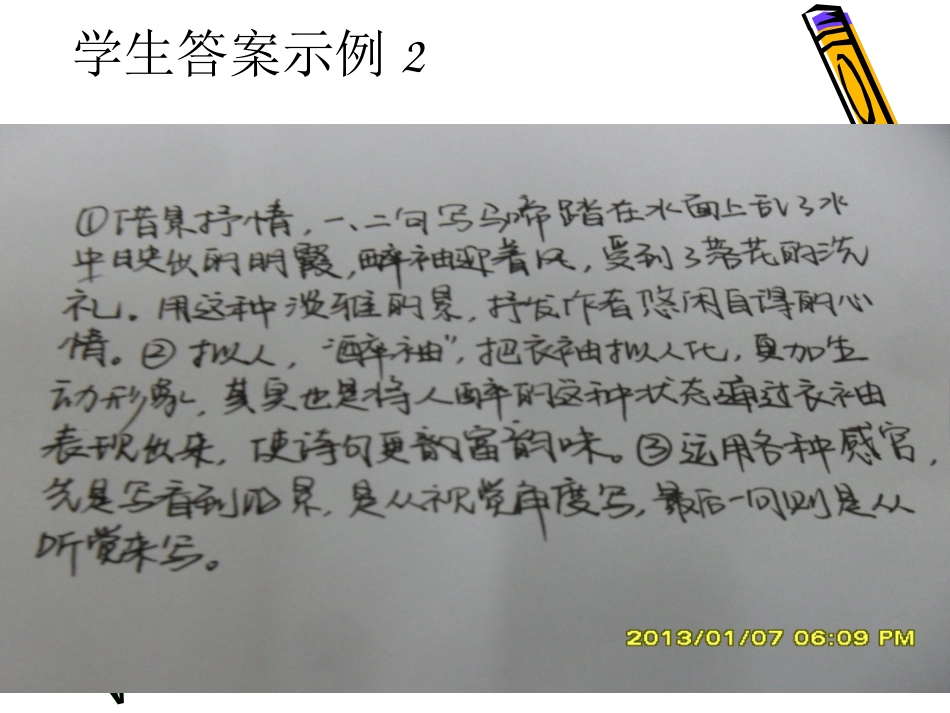 学生答案示例 2
①借景抒情，一、二句写马啼踏在水面上乱了水
中映出的明霞，醉袖迎着风，受到了落花的洗
礼。用这种淡雅的景，抒发作者悠闲自得的心
情。②拟人，“醉袖”，把衣袖拟人化，更加生
动形象，其实也是将人醉的这种状态通过衣袖
表现出来，使诗句更韵富韵味。③运用各种感官，
先是写看到的景，是从视觉角度写，最后一句则是从
听觉来写。
2013/01/07 06:09 PM